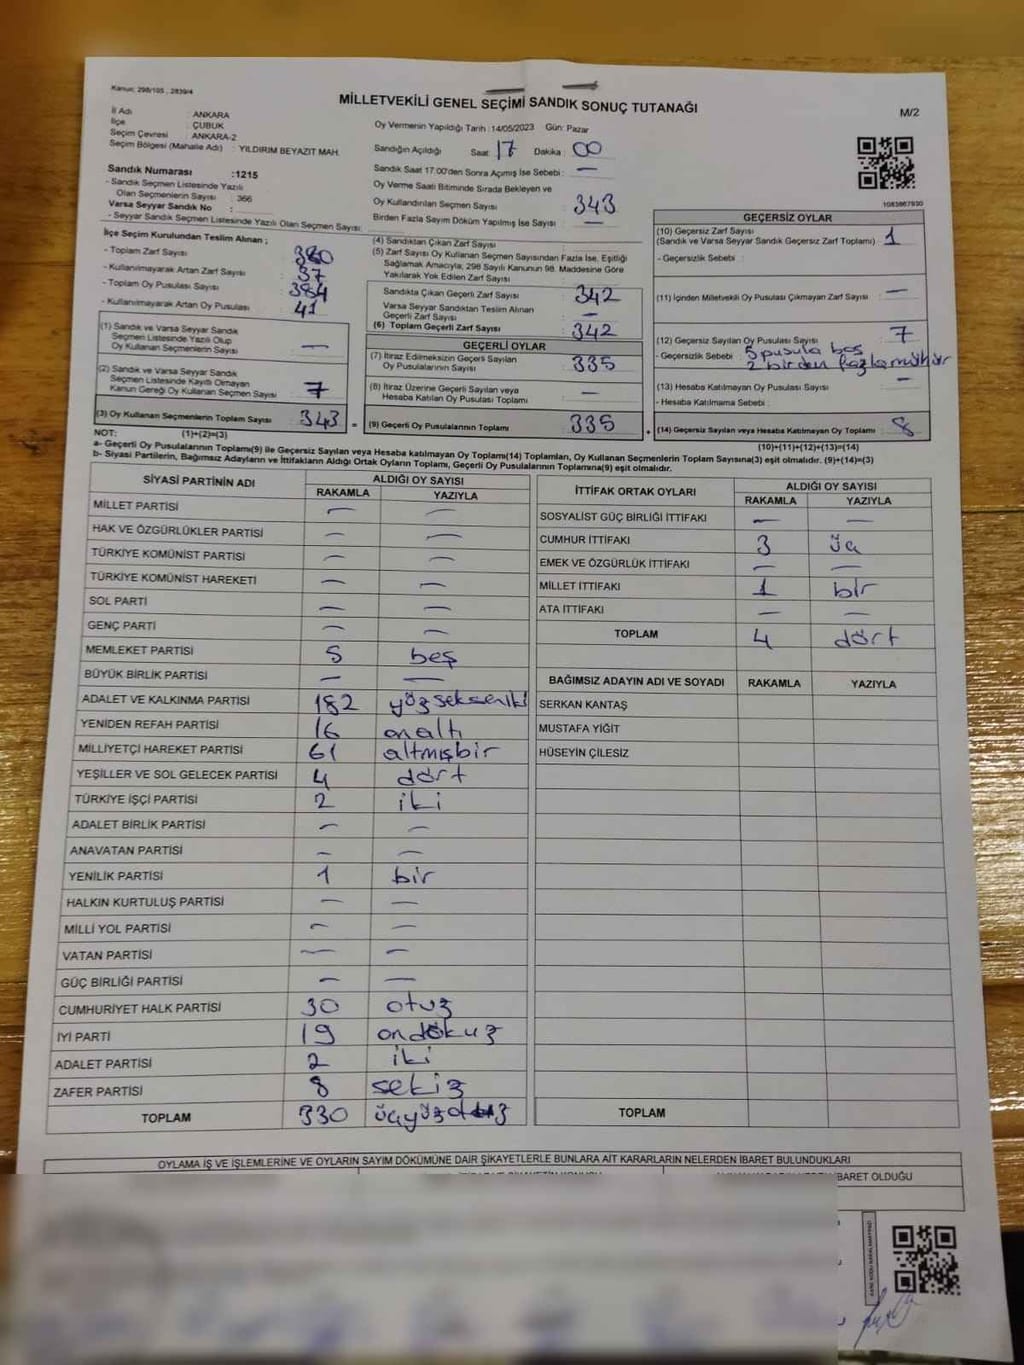 Kanun: 298/105 , 2839/4
MİLLETVEKİLİ GENEL SEÇİMİ SANDIK SONUÇ TUTANAĞI
M/2
İl Adı : ANKARA
İlçe : ÇUBUK
Seçim Çevresi : ANKARA-2
Seçim Bölgesi (Mahalle Adı) : YILDIRIM BEYAZIT MAH.
Oy Vermenin Yapıldığı Tarih :14/05/2023 Gün: Pazar
Sandığın Açıldığı Saat: 17 Dakika: 00
Sandık Saat 17.00'den Sonra Açmış İse Sebebi: —
Oy Verme Saati Bitiminde Sırada Bekleyen ve
Oy Kullandırılan Seçmen Sayısı : 343
Birden Fazla Sayım Döküm Yapılmış İse Sayısı : —
Sandık Numarası :1215
- Sandık Seçmen Listesinde Yazılı
Olan Seçmenlerin Sayısı : 366
Varsa Seyyar Sandık No :
- Seyyar Sandık Seçmen Listesinde Yazılı Olan Seçmen Sayısı:
1083867930
İlçe Seçim Kurulundan Teslim Alınan ;
- Toplam Zarf Sayısı : 380
- Kullanılmayarak Artan Zarf Sayısı : 37
- Toplam Oy Pusulası Sayısı : 384
- Kullanılmayarak Artan Oy Pusulası : 41
(1) Sandık ve Varsa Seyyar Sandık
Seçmen Listesinde Yazılı Olup
Oy Kullanan Seçmenlerin Sayısı : —
(2) Sandık ve Varsa Seyyar Sandık
Seçmen Listesinde Kayıtlı Olmayan
Kanun Gereği Oy Kullanan Seçmen Sayısı : 7
(3) Oy Kullanan Seçmenlerin Toplam Sayısı : 343
(1)+(2)=(3)
(4) Sandıktan Çıkan Zarf Sayısı :
(5) Zarf Sayısı Oy Kullanan Seçmen Sayısından Fazla İse, Eşitliği
Sağlamak Amacıyla, 298 Sayılı Kanunun 98. Maddesine Göre
Yakılarak Yok Edilen Zarf Sayısı :
Sandıkta Çıkan Geçerli Zarf Sayısı : 342
Varsa Seyyar Sandıktan Teslim Alınan
Geçerli Zarf Sayısı : —
(6) Toplam Geçerli Zarf Sayısı : 342
GEÇERLİ OYLAR
(7) İtiraz Edilmeksizin Geçerli Sayılan
Oy Pusulalarının Sayısı : 335
(8) İtiraz Üzerine Geçerli Sayılan veya
Hesaba Katılan Oy Pusulası Toplamı : —
= (9) Geçerli Oy Pusulalarının Toplamı : 335
GEÇERSİZ OYLAR
(10) Geçersiz Zarf Sayısı
(Sandık ve Varsa Seyyar Sandık Geçersiz Zarf Toplamı) : 1
- Geçersizlik Sebebi :
(11) İçinden Milletvekili Oy Pusulası Çıkmayan Zarf Sayısı : —
(12) Geçersiz Sayılan Oy Pusulası Sayısı : 7
- Geçersizlik Sebebi : 5 pusula boş
2 birden fazla mühür
(13) Hesaba Katılmayan Oy Pusulası Sayısı : —
- Hesaba Katılmama Sebebi :
+ (14) Geçersiz Sayılan veya Hesaba Katılmayan Oy Toplamı : 8
(10)+(11)+(12)+(13)=(14)
NOT:
a- Geçerli Oy Pusulalarının Toplamı(9) ile Geçersiz Sayılan veya Hesaba katılmayan Oy Toplamı(14) Toplamları, Oy Kullanan Seçmenlerin Toplam Sayısına(3) eşit olmalıdır. (9)+(14)=(3)
b- Siyasi Partilerin, Bağımsız Adayların ve İttifakların Aldığı Ortak Oyların Toplamı, Geçerli Oy Pusulalarının Toplamına(9) eşit olmalıdır.
SİYASİ PARTİNİN ADI ALDIĞI OY SAYISI
RAKAMLA YAZIYLA
MİLLET PARTİSİ — —
HAK VE ÖZGÜRLÜKLER PARTİSİ — —
TÜRKİYE KOMÜNİST PARTİSİ — —
TÜRKİYE KOMÜNİST HAREKETİ — —
SOL PARTİ — —
GENÇ PARTİ — —
MEMLEKET PARTİSİ 5 beş
BÜYÜK BİRLİK PARTİSİ — —
ADALET VE KALKINMA PARTİSİ 182 yüzsekseniki
YENİDEN REFAH PARTİSİ 16 onaltı
MİLLİYETÇİ HAREKET PARTİSİ 61 altmışbir
YEŞİLLER VE SOL GELECEK PARTİSİ 4 dört
TÜRKİYE İŞÇİ PARTİSİ 2 iki
ADALET BİRLİK PARTİSİ — —
ANAVATAN PARTİSİ — —
YENİLİK PARTİSİ 1 bir
HALKIN KURTULUŞ PARTİSİ — —
MİLLİ YOL PARTİSİ — —
VATAN PARTİSİ — —
GÜÇ BİRLİĞİ PARTİSİ — —
CUMHURİYET HALK PARTİSİ 30 otuz
İYİ PARTİ 19 ondokuz
ADALET PARTİSİ 2 iki
ZAFER PARTİSİ 8 sekiz
TOPLAM 330
İTTİFAK ORTAK OYLARI ALDIĞI OY SAYISI
RAKAMLA YAZIYLA
SOSYALİST GÜÇ BİRLİĞİ İTTİFAKI — —
CUMHUR İTTİFAKI 3 üç
EMEK VE ÖZGÜRLÜK İTTİFAKI — —
MİLLET İTTİFAKI 1 bir
ATA İTTİFAKI — —
TOPLAM 4 dört
BAĞIMSIZ ADAYIN ADI VE SOYADI RAKAMLA YAZIYLA
SERKAN KANTAŞ
MUSTAFA YİĞİT
HÜSEYİN ÇİLESİZ
TOPLAM
OYLAMA İŞ VE İŞLEMLERİNE VE OYLARIN SAYIM DÖKÜMÜNE DAİR ŞİKAYETLERLE BUNLARA AİT KARARLARIN NELERDEN İBARET BULUNDUKLARI
İBARET OLDUĞU